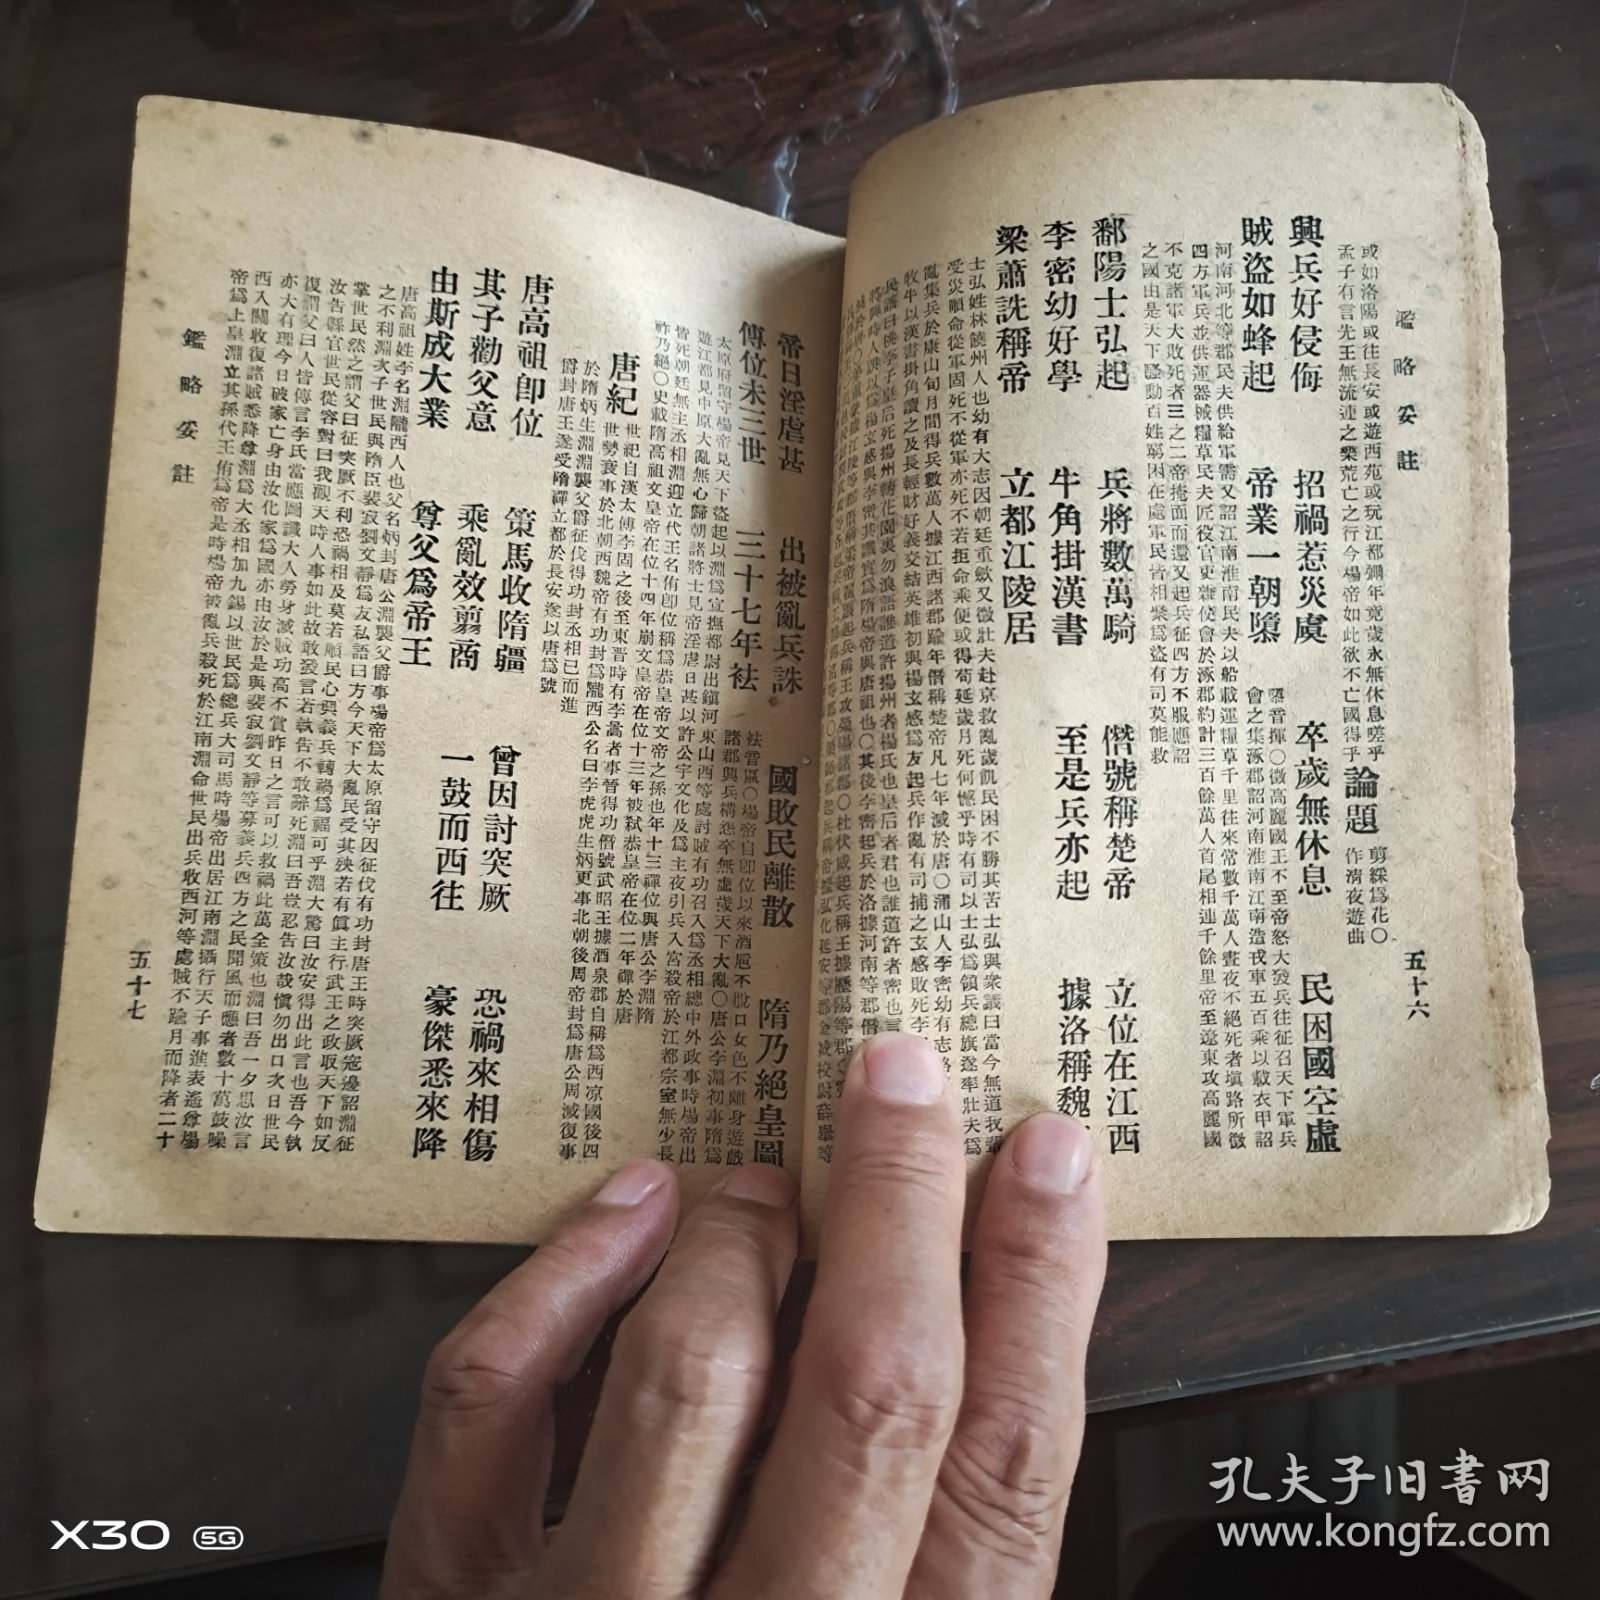 鑑略妥註
五十六
或如洛陽或往長安或遊西苑或玩江都彌年竟歲永無休息嗟乎論題 剪綵爲花〇作淸夜遊曲
孟子有言先王無流連之樂荒亡之行今煬帝如此欲不亡國得乎
興兵好侵侮 招禍惹災虞 卒歲無休息 民困國空虛
賊盜如蜂起 帝業一朝隳
隳音揮〇徵高麗國王不至帝怒大發兵往征召天下軍兵
會之集涿郡詔河南淮南江南造戎車五百乘以載衣甲詔
河南河北等郡民夫供給軍需又詔江南淮南民夫以船載運糧草千里往來常數千萬人晝夜不絕死者塡路所徵
四方軍兵並供運器械糧草民夫匠役官吏雜使會於涿郡約計三百餘萬人首尾相連千餘里帝至遼東攻高麗國
不克諸軍大敗死者三之二帝掩面而還又起兵征四方不服應詔
之國由是天下騷動百姓窮困在處軍民皆相聚爲盜有司莫能救
鄱陽士弘起 兵將數萬騎 僭號稱楚帝 立位在江西
李密幼好學 牛角掛漢書 至是兵亦起 據洛稱魏
梁蕭詵稱帝 立都江陵居
士弘姓林饒州人也幼有大志因朝廷重斂又徵壯夫赴京救亂歲飢民困不勝其苦士弘與衆議曰當今無道我輩
受災順命從軍固死不從軍亦死不若拒命乘便或得苟延歲月死何憾乎時有司以士弘爲領兵總旗遂率壯夫爲
亂集兵於康山旬月間得兵數萬人據江西諸郡踰年僭稱楚帝凡七年滅於唐〇蒲山人李密幼有志
牧牛以漢書掛角讀之及長輕財好義交結英雄初與楊玄感爲友起兵作亂有司捕之玄感敗死李
民謠曰桃李子皇后死揚州轉花園裏勿浪語誰道許揚州者楊氏也皇后者君也誰道許者密也言
將興時人誤以爲楊玄感與李密其讖實爲隋煬帝與唐祖也〇其後李密起兵於洛據河南等郡僭
帝日淫虐甚 出被亂兵誅 國敗民離散 隋乃絕皇圖
傳位未三世 三十七年祛
祛音區〇煬帝自卽位以來酒巵不脫口女色不離身遊戲
諸郡興兵構怨卒無虛歲天下大亂〇唐公李淵初事隋爲
太原府留守煬帝見天下盜起以淵爲宣撫都尉出鎭河東山西等處討賊有功召入爲丞相總中外政事時煬帝出
遊江都見中原大亂無心歸朝諸將士見帝淫虐日甚以許公宇文化及爲主夜引兵入宮殺帝於江都宗室無少長
皆死朝廷無主丞相淵迎立代王名侑卽位稱爲恭皇帝文帝之孫也年十三禪位與唐公李淵隋
祚乃絕〇史載隋高祖文皇帝在位十四年崩文皇帝在位十三年被弒恭皇帝在位二年禪於唐
唐紀 世紀自漢太傅李固之後至東晉時有李暠者事晉得功僭號武昭王據酒泉郡自稱爲西凉國後四
世勢衰事於北朝西魏帝有功封爲隴西公名曰李虎虎生炳更事北朝後周帝封爲唐公周滅復事
於隋炳生淵淵襲父爵征伐得功封丞相已而進
爵封唐王遂受隋禪立都於長安遂以唐爲號
唐高祖卽位 策馬收隋疆 曾因討突厥 恐禍來相傷
其子勸父意 乘亂效剪商 一鼓而西往 豪傑悉來降
由斯成大業 尊父爲帝王
唐高祖姓李名淵隴西人也父名炳封唐公淵襲父爵事煬帝爲太原留守因征伐有功封唐王時突厥寇邊詔淵征
之不利淵次子世民與隋臣裴寂劉文靜爲友私語曰方今天下大亂民受其殃若有眞主行武王之政取天下如反
掌世民然之謂父曰征突厥不利恐禍相及莫若順民心興義兵轉禍爲福可乎淵大驚曰汝安得出此言也吾今執
汝告縣官世民從容對曰我觀天時人事如此故敢發言若執告不敢辭死淵曰吾豈忍告汝哉愼勿出口次日世民
復謂父曰人皆傳言李氏當應圖讖大人勞身滅賊功高不賞昨日之言可以救禍此萬全策也淵曰吾一夕思汝言
亦大有理今日破家亡身由汝化家爲國亦由汝於是與裴寂劉文靜等募義兵四方之民聞風而應者數十萬鼓噪
西入關收復諸賊悉降尊淵爲大丞相加九錫以世民爲總兵大司馬時煬帝出居江南淵攝行天子事進表遙尊煬
帝爲上皇淵立其孫代王侑爲帝是時煬帝被亂兵殺死於江南淵命世民出兵收西河等處賊不踰月而降者二十
鑑略妥註
五十七
X30 5G
孔夫子旧书网
www.kongfz.com